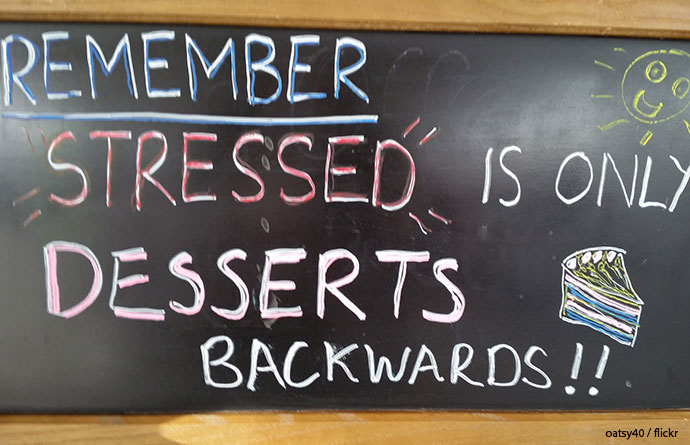 REMEMBER
STRESSED IS ONLY
DESSERTS
BACKWARDS!!
oatsy40 / flickr